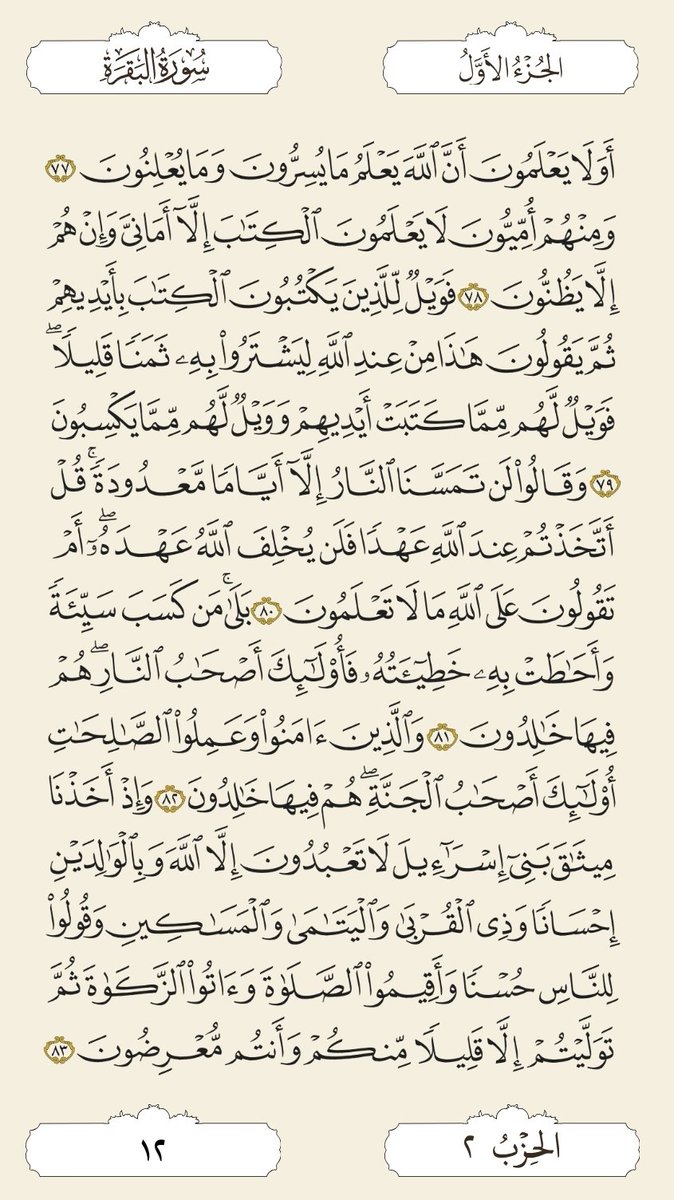 الجُزْءُ الأَوَّلُ
سُورَةُ البَقَرَةِ
أَوَلَا يَعْلَمُونَ أَنَّ ٱللَّهَ يَعْلَمُ مَا يُسِرُّونَ وَمَا يُعْلِنُونَ ٧٧
وَمِنْهُمْ أُمِّيُّونَ لَا يَعْلَمُونَ ٱلْكِتَٰبَ إِلَّآ أَمَانِىَّ وَإِنْ هُمْ
إِلَّا يَظُنُّونَ ٧٨ فَوَيْلٌ لِّلَّذِينَ يَكْتُبُونَ ٱلْكِتَٰبَ بِأَيْدِيهِمْ
ثُمَّ يَقُولُونَ هَٰذَا مِنْ عِندِ ٱللَّهِ لِيَشْتَرُوا۟ بِهِۦ ثَمَنًا قَلِيلًا ۖ
فَوَيْلٌ لَّهُم مِّمَّا كَتَبَتْ أَيْدِيهِمْ وَوَيْلٌ لَّهُم مِّمَّا يَكْسِبُونَ
٧٩ وَقَالُوا۟ لَن تَمَسَّنَا ٱلنَّارُ إِلَّآ أَيَّامًا مَّعْدُودَةً ۚ قُلْ
أَتَّخَذْتُمْ عِندَ ٱللَّهِ عَهْدًا فَلَن يُخْلِفَ ٱللَّهُ عَهْدَهُۥٓ ۖ أَمْ
تَقُولُونَ عَلَى ٱللَّهِ مَا لَا تَعْلَمُونَ ٨٠ بَلَىٰ ۚ مَن كَسَبَ سَيِّئَةً
وَأَحَٰطَتْ بِهِۦ خَطِيٓـَٔتُهُۥ فَأُو۟لَٰٓئِكَ أَصْحَٰبُ ٱلنَّارِ ۖ هُمْ
فِيهَا خَٰلِدُونَ ٨١ وَٱلَّذِينَ ءَامَنُوا۟ وَعَمِلُوا۟ ٱلصَّٰلِحَٰتِ
أُو۟لَٰٓئِكَ أَصْحَٰبُ ٱلْجَنَّةِ ۖ هُمْ فِيهَا خَٰلِدُونَ ٨٢ وَإِذْ أَخَذْنَا
مِيثَٰقَ بَنِىٓ إِسْرَٰٓءِيلَ لَا تَعْبُدُونَ إِلَّا ٱللَّهَ وَبِٱلْوَٰلِدَيْنِ
إِحْسَانًا وَذِى ٱلْقُرْبَىٰ وَٱلْيَتَٰمَىٰ وَٱلْمَسَٰكِينِ وَقُولُوا۟
لِلنَّاسِ حُسْنًا وَأَقِيمُوا۟ ٱلصَّلَوٰةَ وَءَاتُوا۟ ٱلزَّكَوٰةَ ثُمَّ
تَوَلَّيْتُمْ إِلَّا قَلِيلًا مِّنكُمْ وَأَنتُم مُّعْرِضُونَ ٨٣
الحِزْبُ ٢
١٢